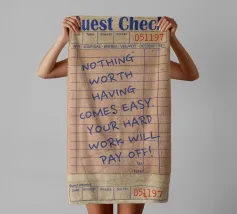 uest Chec
051157
NOTHING
WORTH
HAVING
COMES EASY.
YOUR HARD
WORK WILL
PAY OFF!
051157